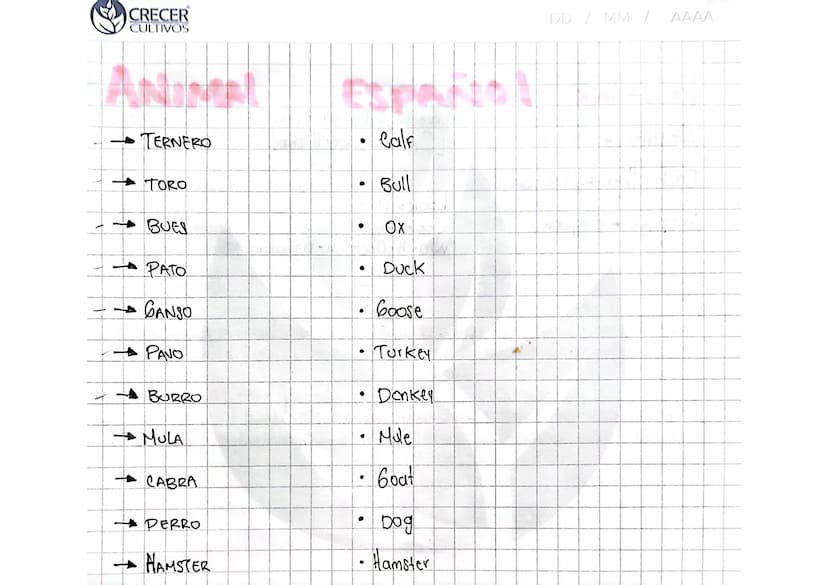 CRECER
CULTIVOS
DD / MM / AAAA
ANIMAl ESPAÑOl
→ TERNERO • Calf
→ TORO • Bull
→ BUEY • OX
→ PATO • Duck
→ GANSO • Goose
→ PAVO • Turkey
→ BURRO • Donkey
→ MULA • Mule
→ CABRA • Goat
→ PERRO • Dog
→ HAMSTER • Hamster